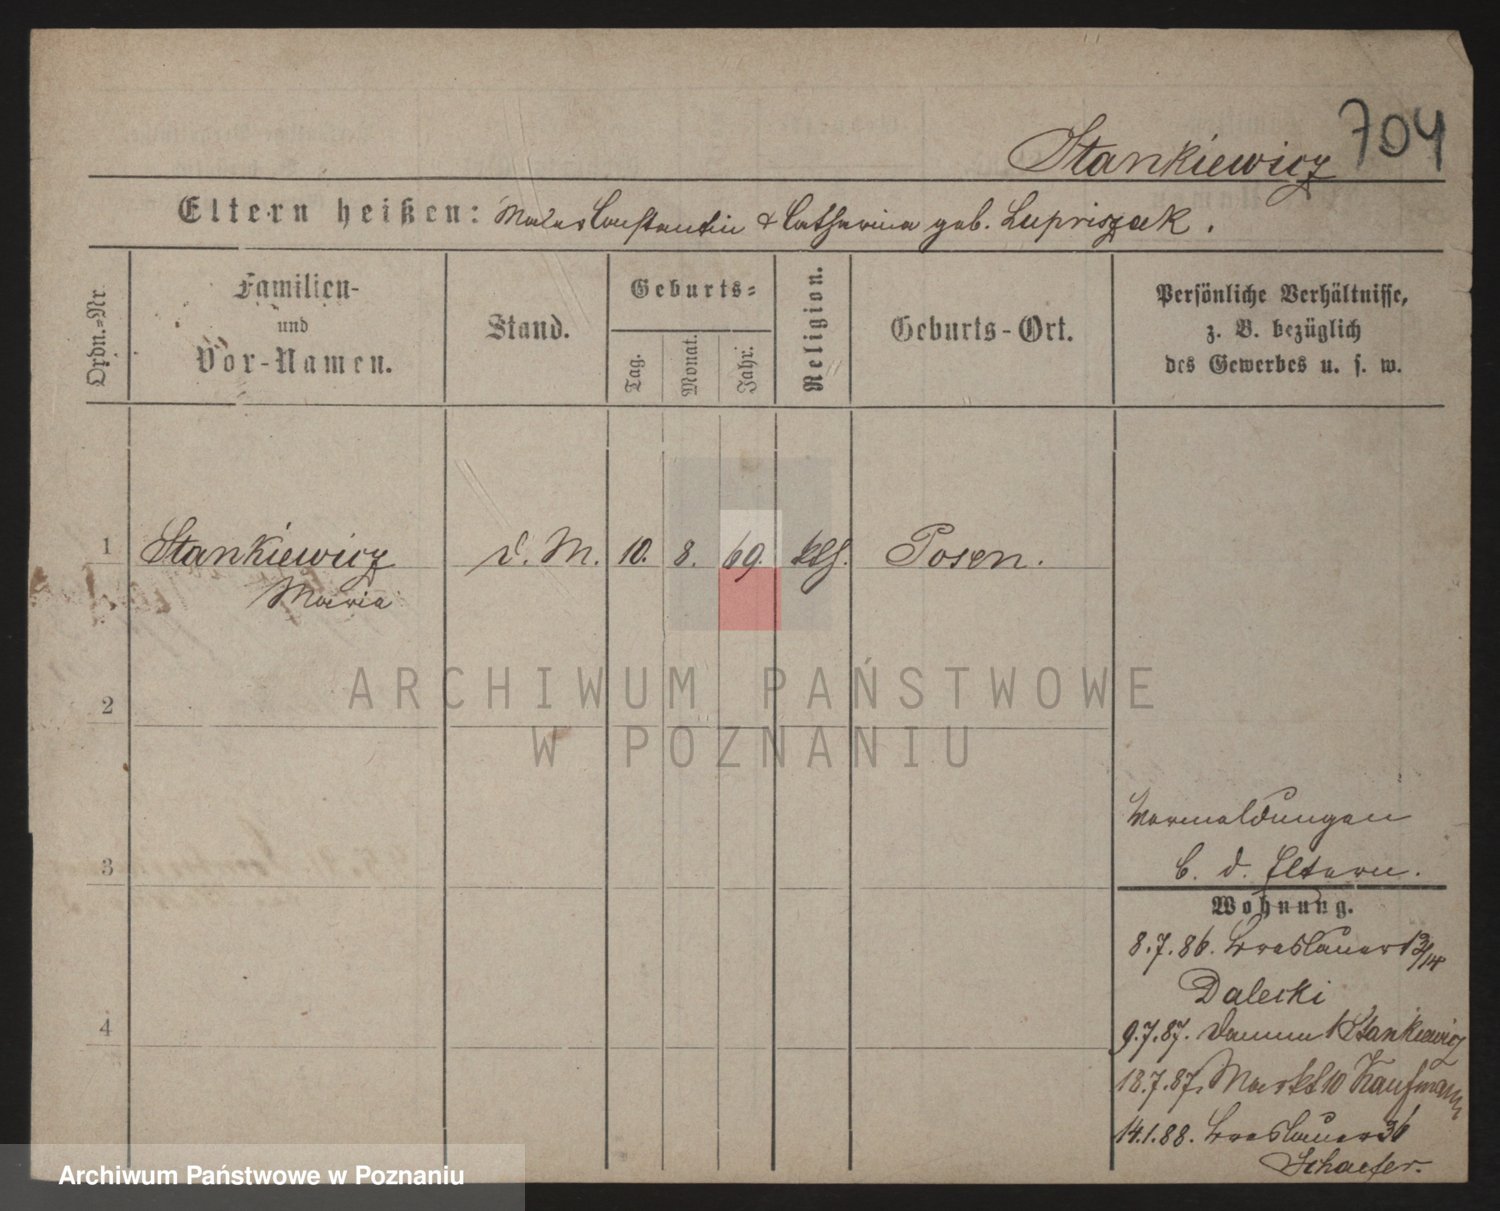 704
Stankiewicz
Eltern heißen: Maler Constantin & Catharina geb. Lupriszak.
Ordn.=Nr.
Familien-
und
Vor-Namen.
Stand.
Geburts=
Tag.
Monat.
Jahr.
Religion.
Geburts-Ort.
Persönliche Verhältnisse,
z. B. bezüglich
des Gewerbes u. s. w.
1 Stankiewicz d. M. 10. 8. 69. kth. Posen.
Maria
2
ARCHIWUM PAŃSTWOWE
W POZNANIU
3
4
Vormeldungen
b. d. Eltern.
Wohnung.
8.7.86. Breslauer 13/14
Dalecki
9.7.87. Damm 1 Stankiewicz
18.7.87. Markt 10 Kaufmann
14.1.88. Breslauer 36
Schaefer.
Archiwum Państwowe w Poznaniu